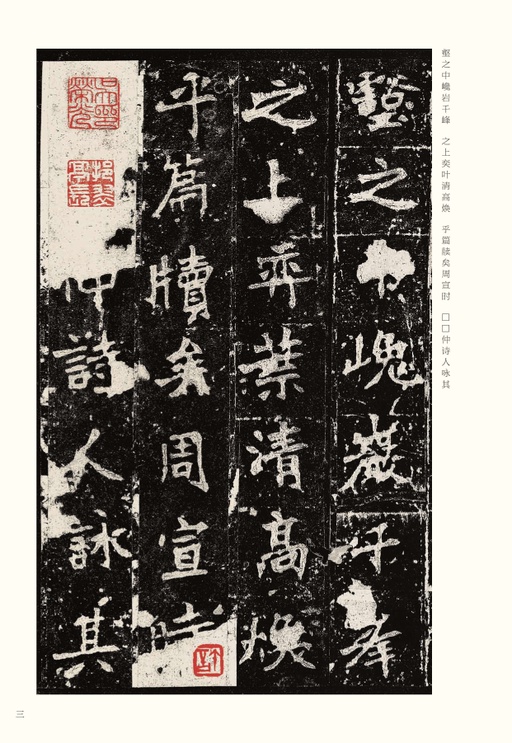 壑之中巉岩千峰　之上奕叶清高焕　乎篇牍矣周宣时　□□仲诗人咏其
壑之中巍巖千峯
之上弈葉清高煥
乎篇牘矣周宣時
仲詩人詠其
三